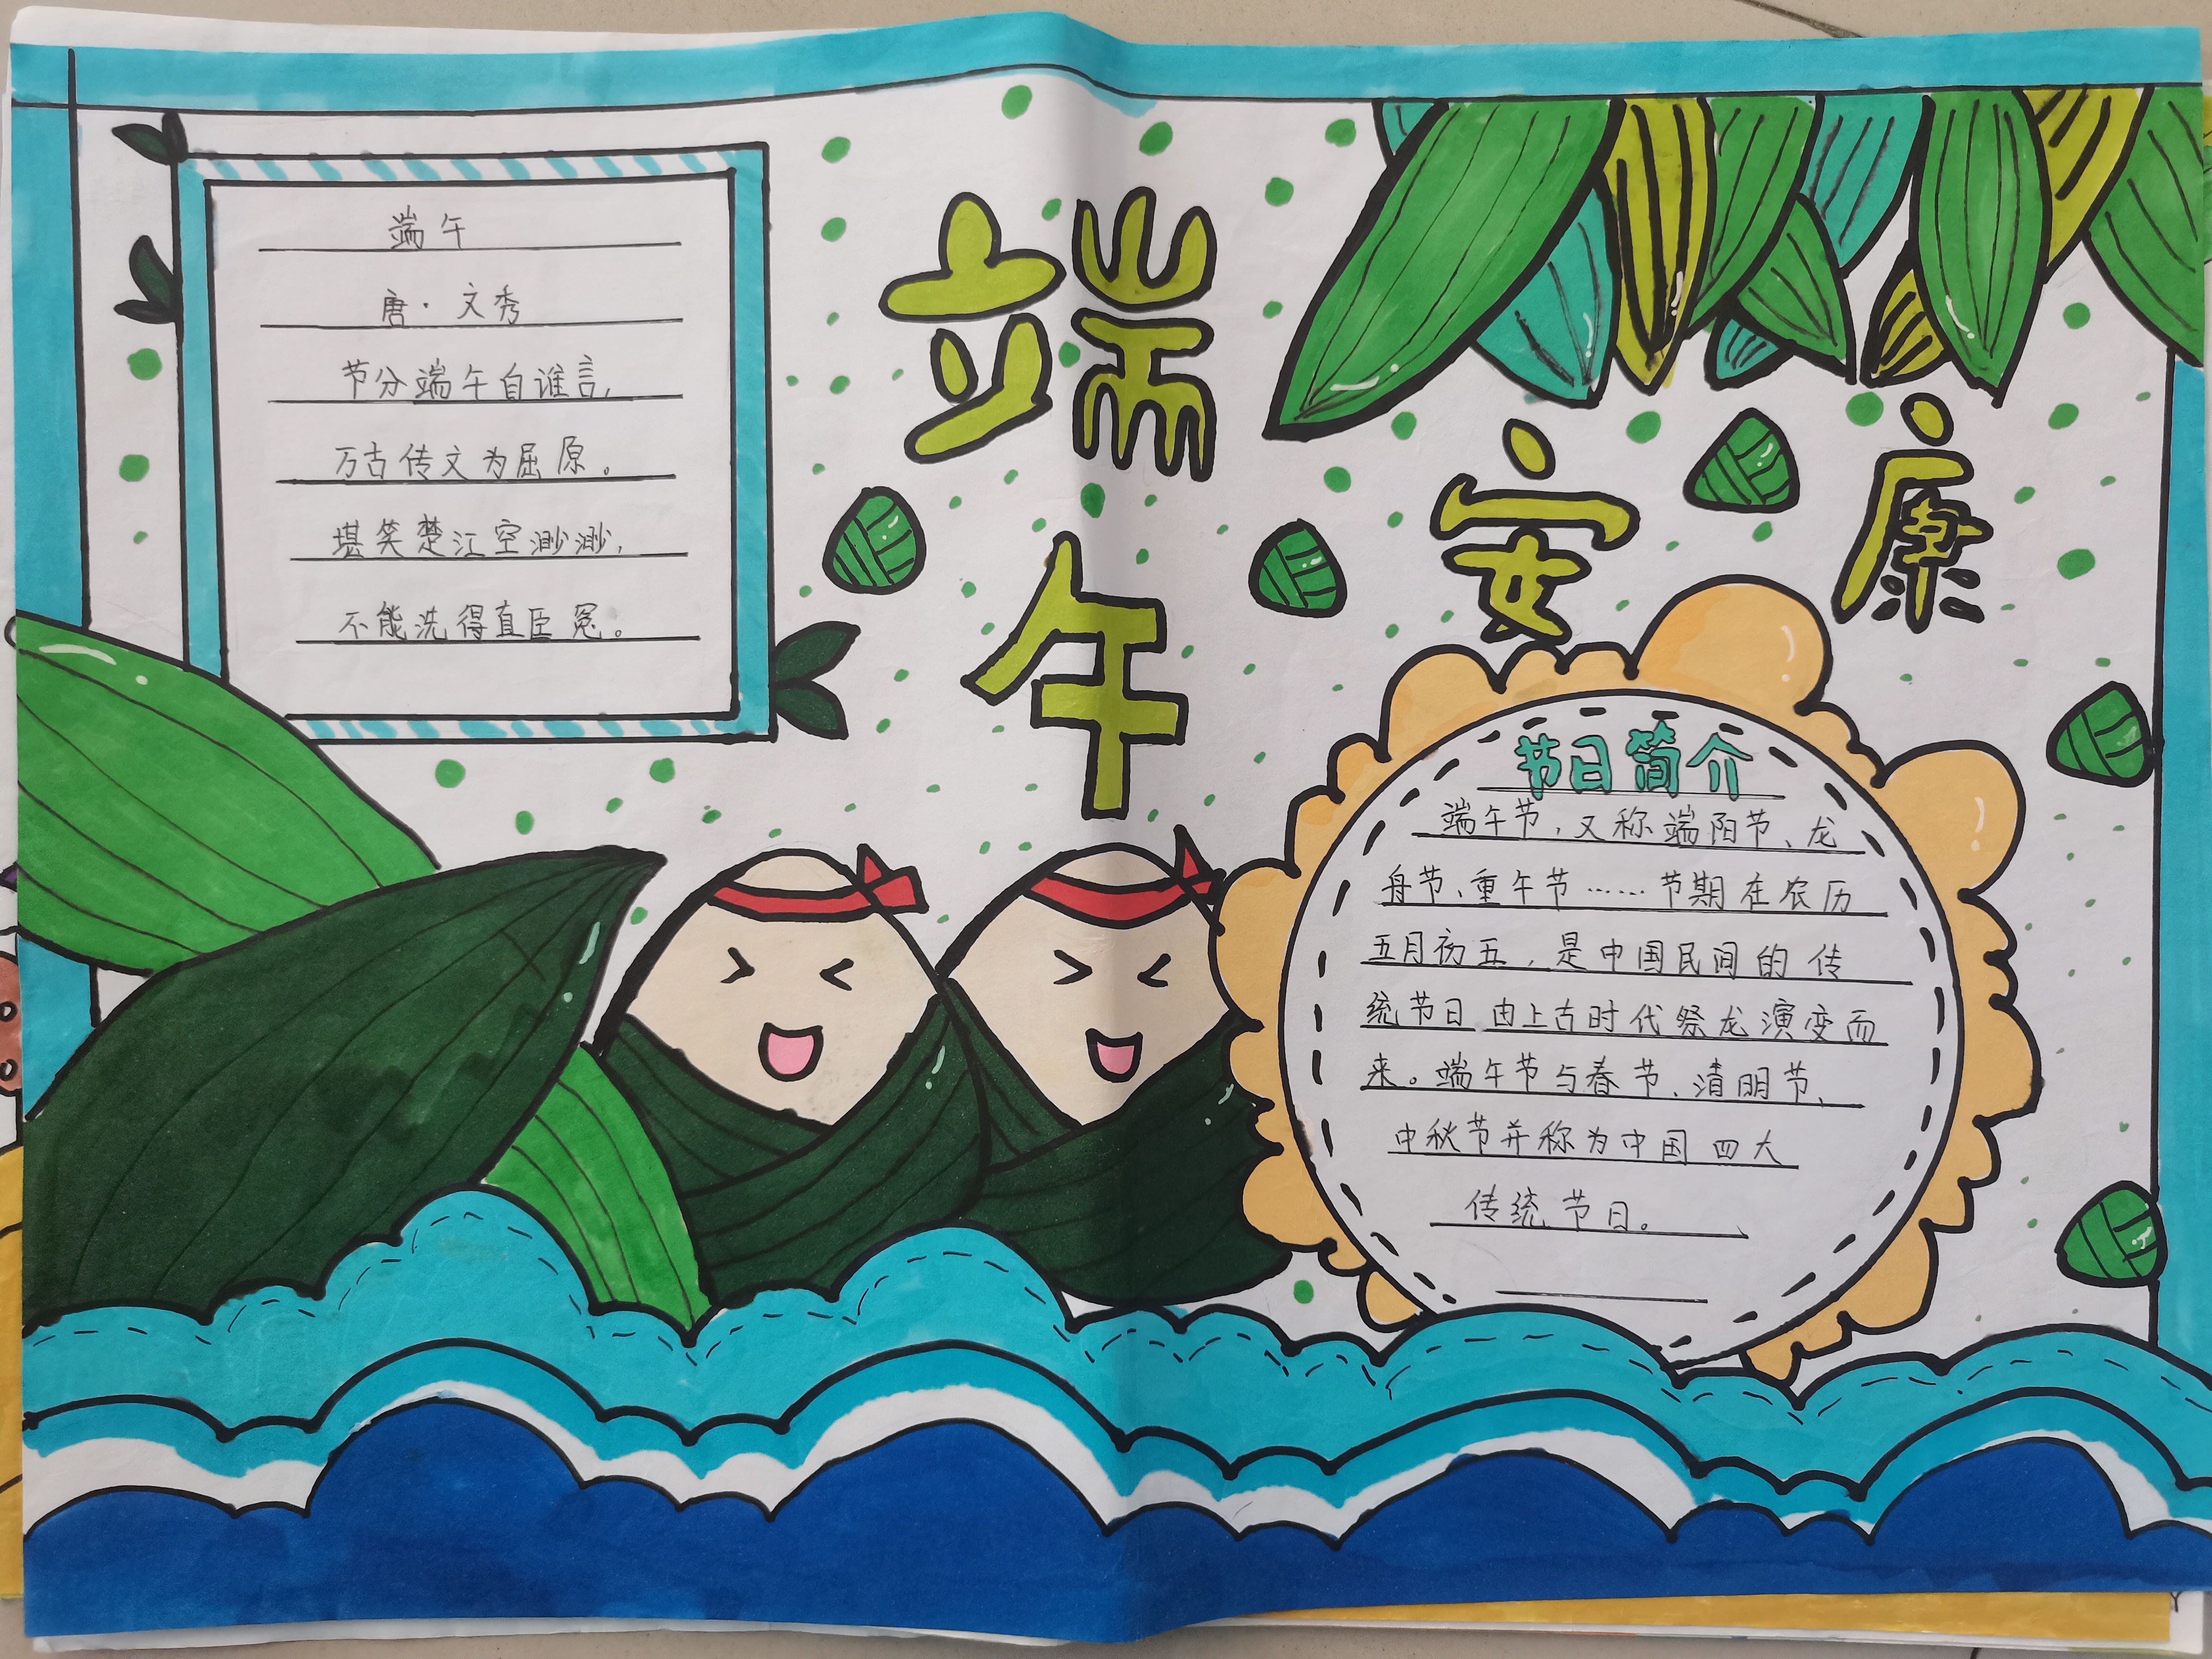 端午
唐·文秀
节分端午自谁言,
万古传文为屈原。
堪笑楚江空渺渺,
不能洗得直臣冤。
端午
安康
节日简介
端午节,又称端阳节、龙
舟节、重午节……节期在农历
五月初五,是中国民间的传
统节日 由上古时代祭龙演变而
来。端午节与春节、清明节、
中秋节并称为中国四大
传统节日。